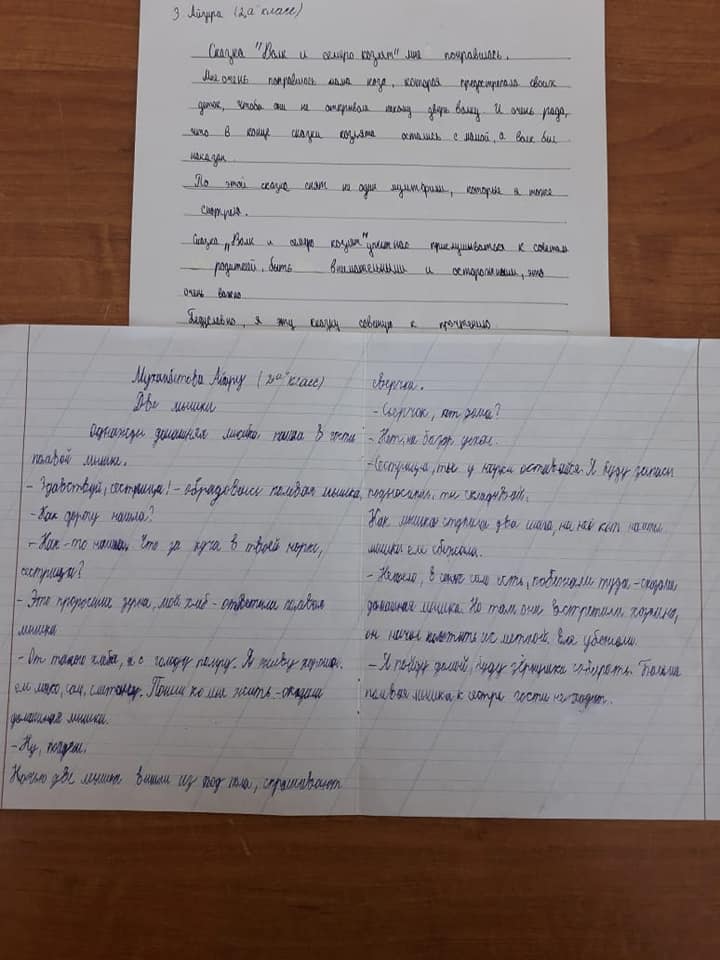 З. Айзура (2"а" класс)
Сказка "Волк и семеро козлят" мне понравилась.
Мне очень понравилась мама коза, которая предостерегала своих
деток, чтобы они не открывали никому дверь волку. И очень рада,
что в конце сказки козлята остались с мамой, а волк был
наказан.
По этой сказке снят не один мультфильм, которые я тоже
смотрела.
Сказка "Волк и семеро козлят" учит нас прислушиваться к советам
родителей, быть внимательными и осторожными, это
очень важно
Безусловно, я эту сказку советую к прочтению
(2"а" класс)
Две мышки
Однажды домашняя мышка пошла в гости
полевой мышке.
- Здавствуй, сестрица! - обрадовалась полевая мышка,
- Как дорогу нашла?
- Как-то нашла. Что за куча в твоей норке,
сестрица?
- Это проросшие зерна, мой хлеб - ответила полевая
мышка
- От такого хлеба, я с голоду помру. Я живу хорошо.
ем мясо, сыр, сметану. Пошли ко мне жить -
домашняя мышка.
- Ну, пойдем.
Ночью две мышки вышли из под пола, спрашивают
Сверчка.
- Сверчок, кот дома?
- Нет, на базар ушел.
- Сестрица, ты у норки оставайся. Я буду запасы
подносить, ты складывай.
Как мышка ступила два шага, на неё кот
мышка еле сбежала.
- Ничего, в сенях сало есть, побежали туда - сказала
домашняя мышка. Но там они встретили хозяина,
он начал колотить их метлой. Еле убежали.
- Я пойду домой, буду зёрнышки собирать. Больше
полевая мышка к сестре гости не ходит.